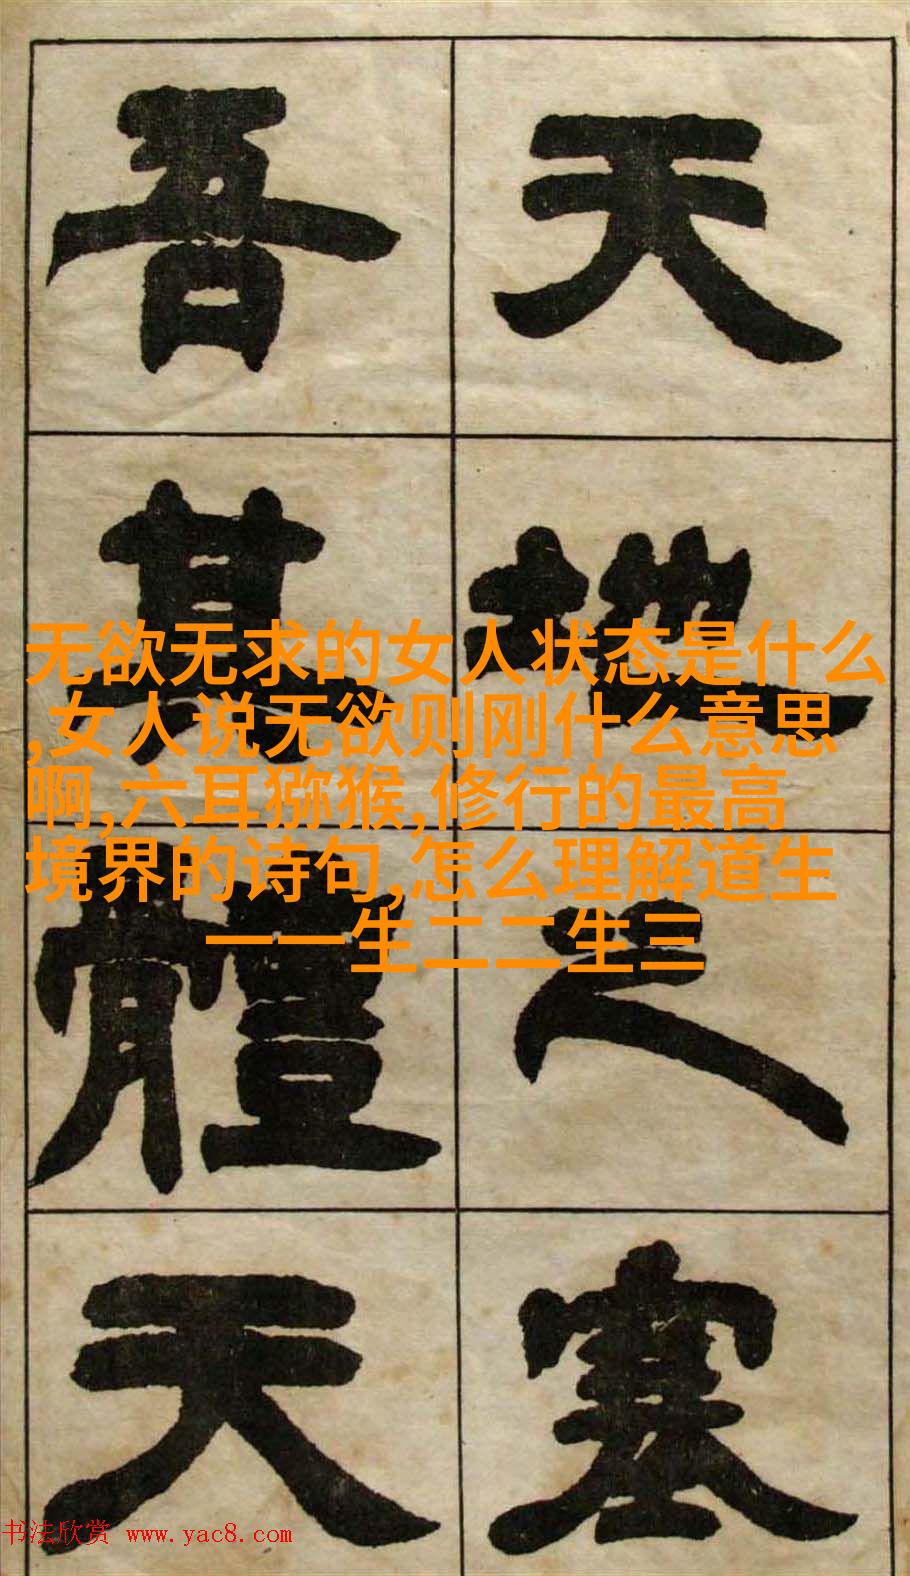 天地之塞
吾其體天
无欲无求的女人状态是什么
,女人说无欲则刚什么意思
啊,六耳猕猴,修行的最高
境界的诗句,怎么理解道生
一一生二二生三
书法欣赏 www.yac8.com